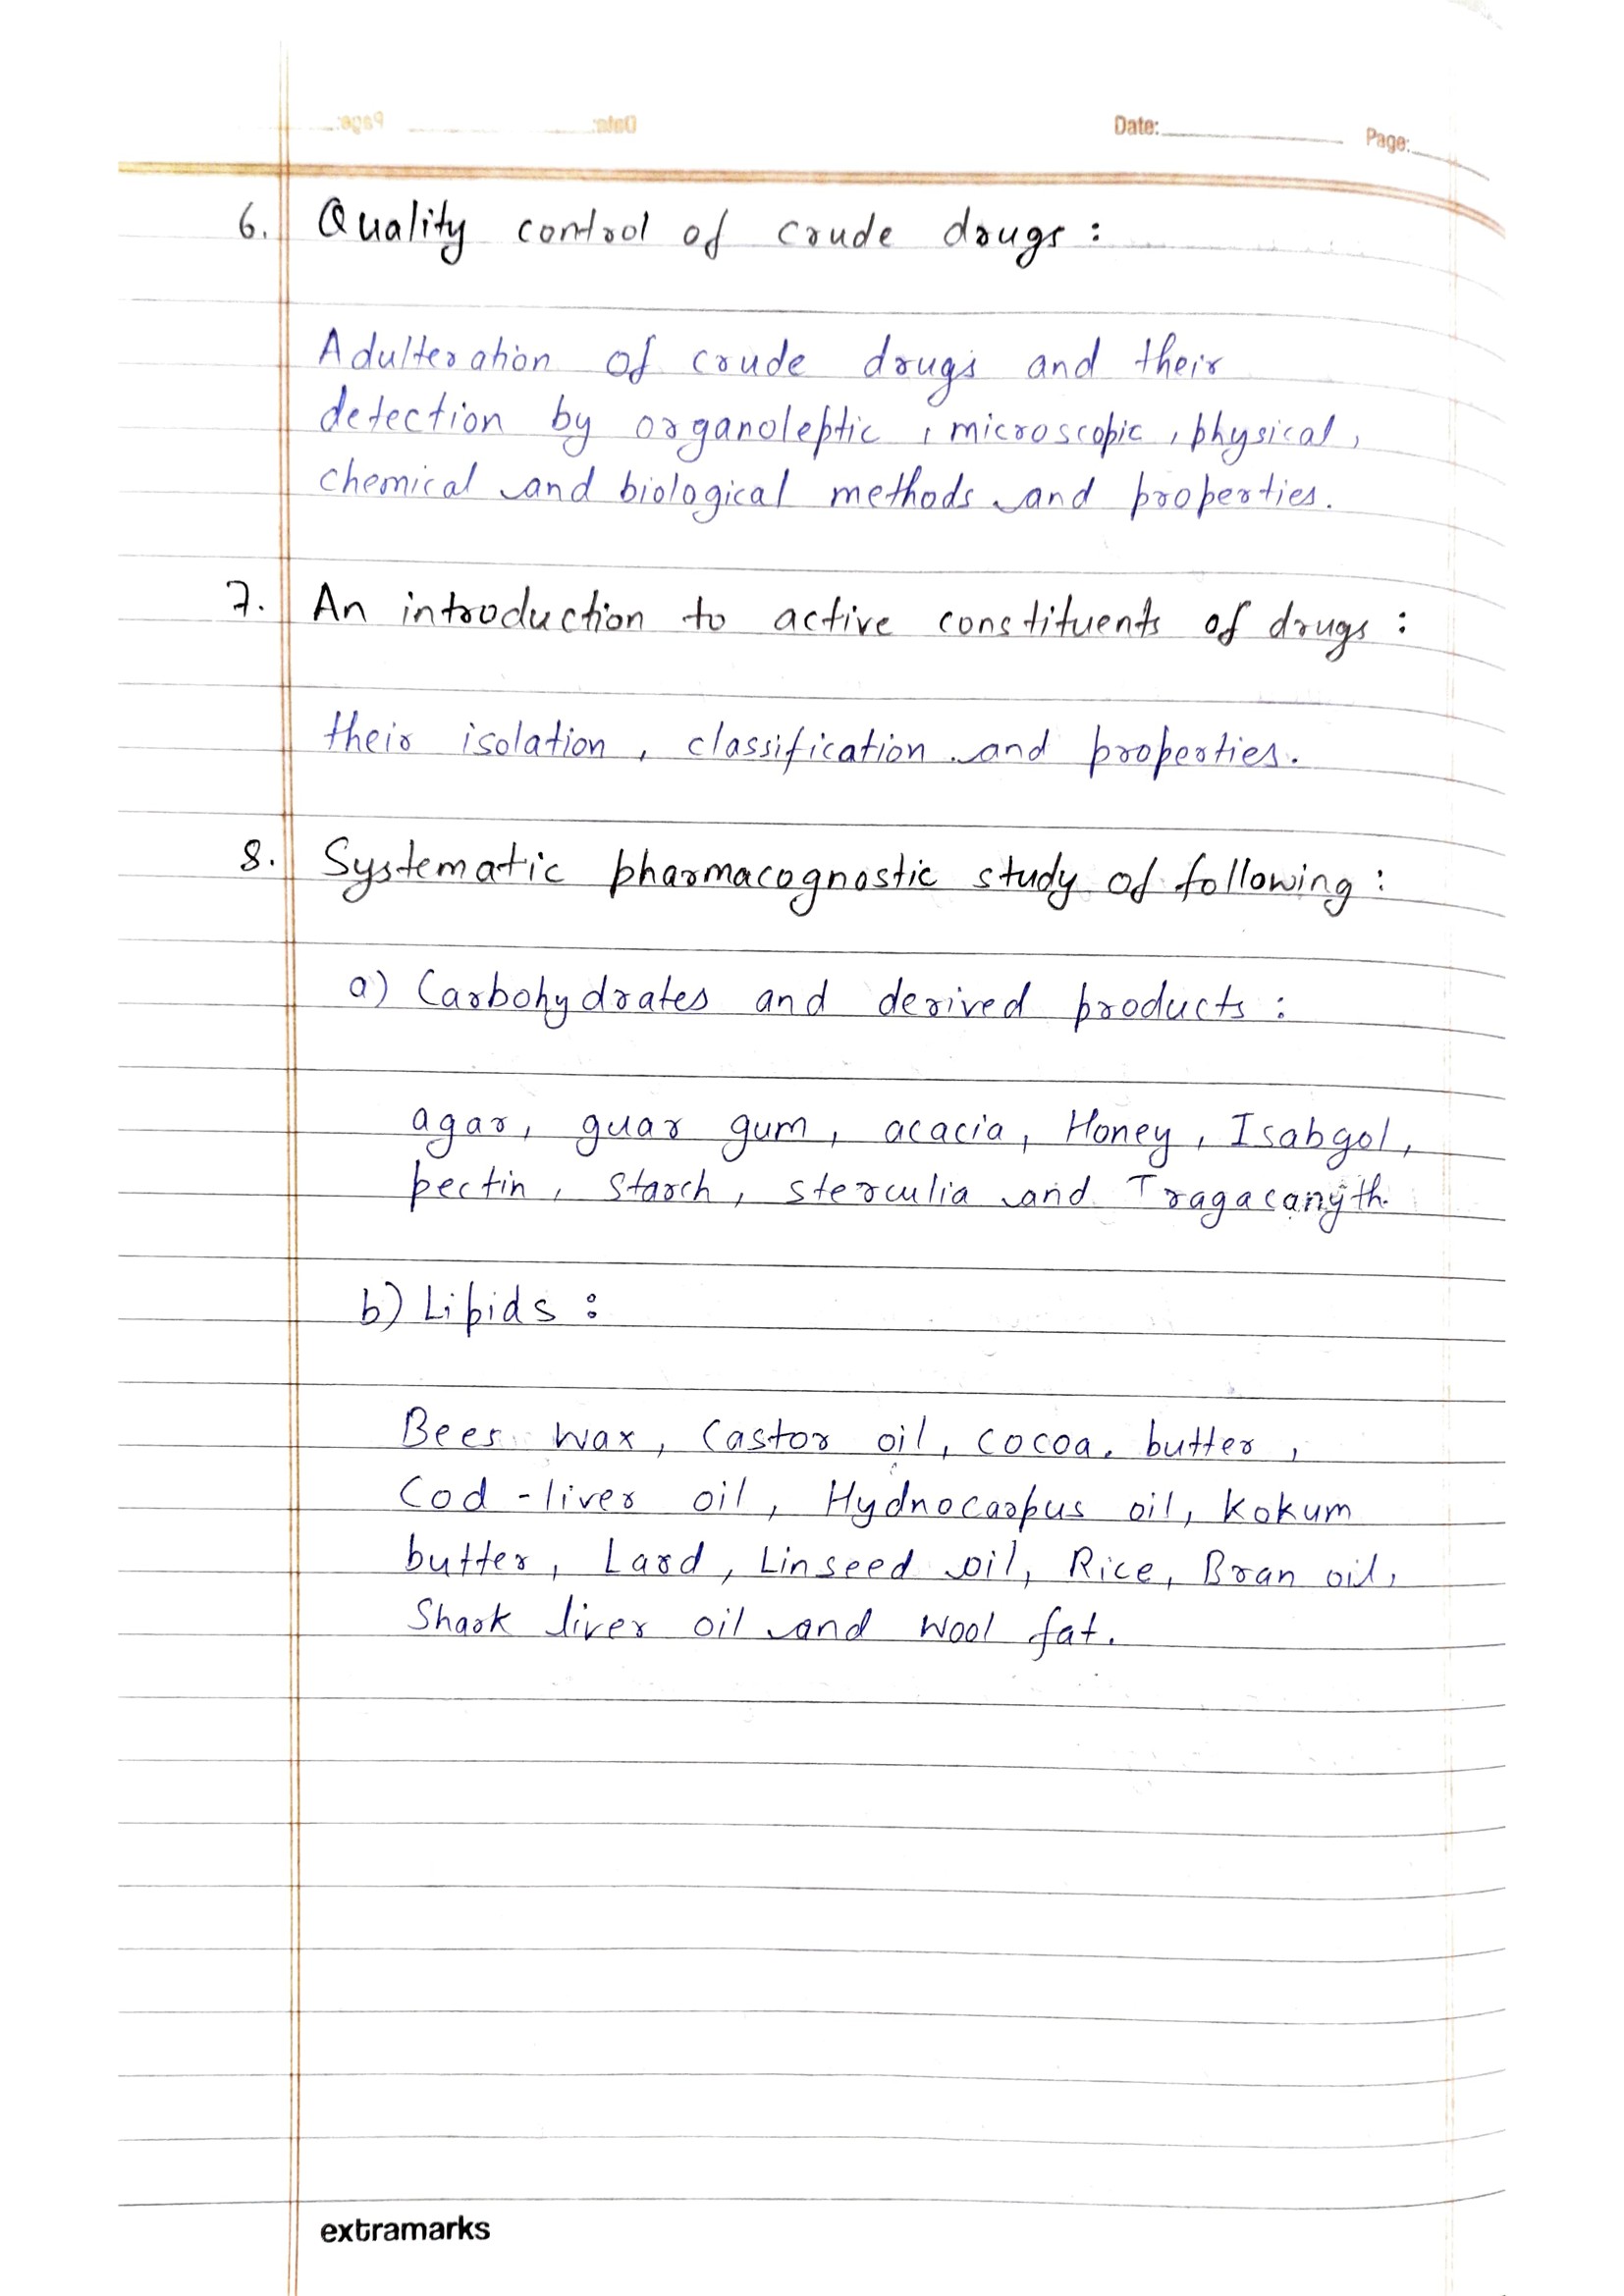 Date: Page:
6. Quality control of crude drugs :
Adulteration of crude drugs and their
detection by organoleptic , microscopic , physical ,
chemical and biological methods and properties.
7. An introduction to active constituents of drugs :
their isolation , classification and properties.
8. Systematic pharmacognostic study of following :
a) Carbohydrates and derived products :
agar, guar gum , acacia, Honey , Isabgol ,
pectin , Starch , sterculia and Tragacanyth.
b) Lipids :
Bees wax , Castor oil , cocoa. butter ,
Cod - liver oil , Hydnocarpus oil, Kokum
butter , Lard , Linseed oil, Rice, Bran oil,
Shark liver oil and wool fat.
extramarks